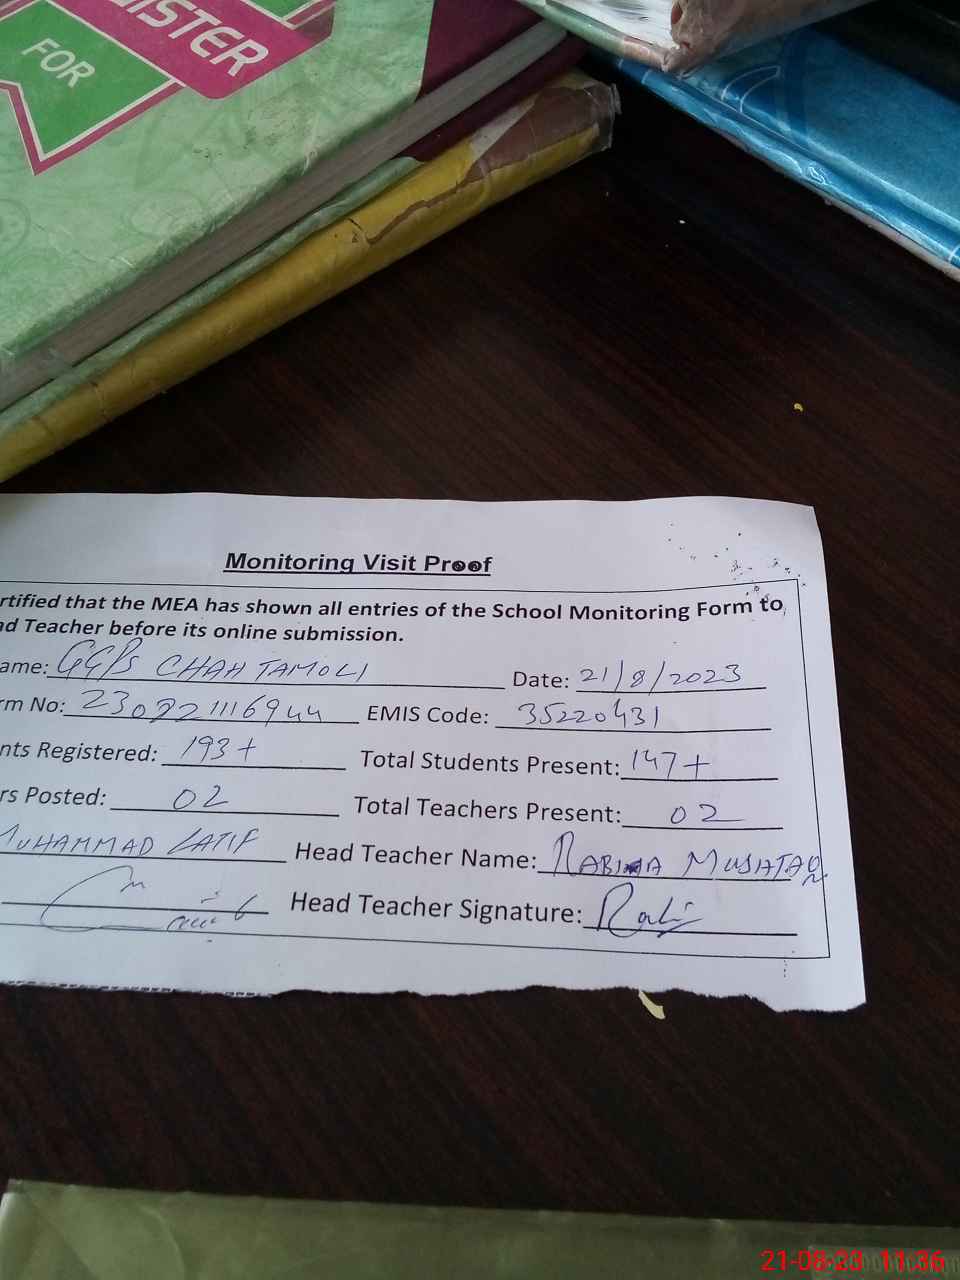 ISTER
FOR
Monitoring Visit Proof
rtified that the MEA has shown all entries of the School Monitoring Form to
ad Teacher before its online submission.
ame: GGPS CHAH TAMOLI Date: 21/8/2023
rm No: 230821116944 EMIS Code: 35220431
nts Registered: 193+ Total Students Present: 147+
rs Posted: 02 Total Teachers Present: 02
MUHAMMAD LATIF Head Teacher Name: RABIHA MUSHTAQ
Head Teacher Signature:
21-08-23 11:36